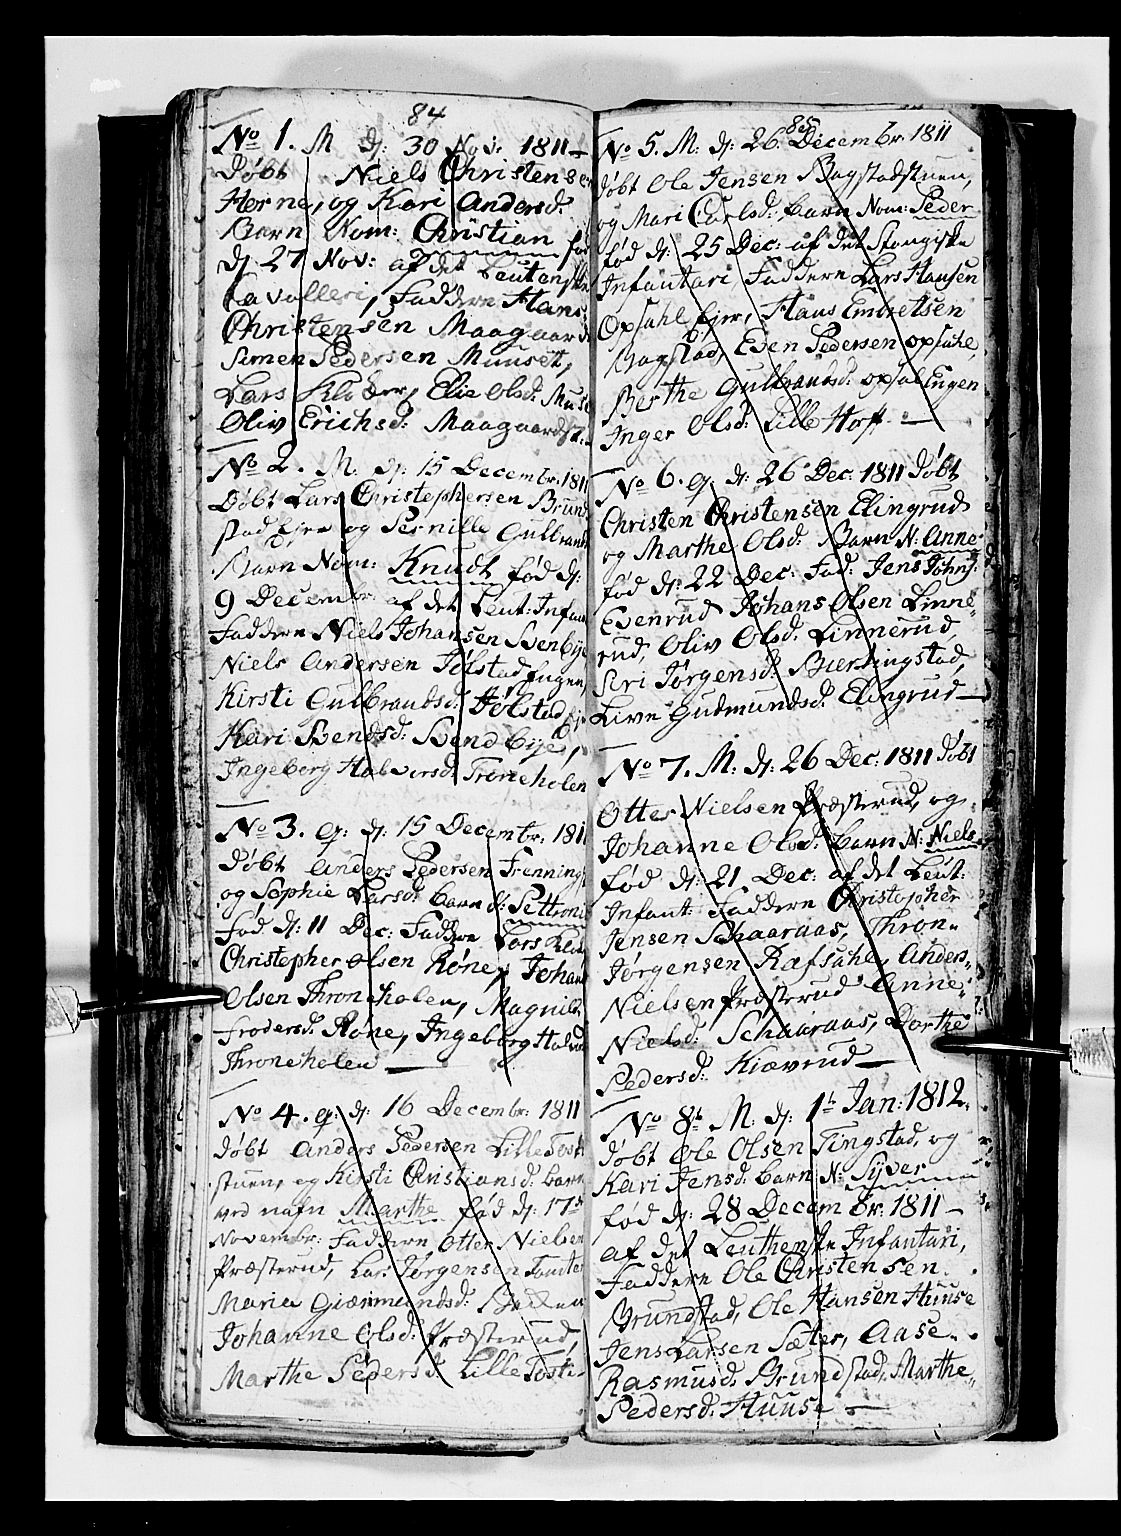 84
No 1. M dj: 30 Nov: 1811 –
Døbt Niels Christensen
Horne, og Kari Andersd:
Barn Nom: Christian fød
dj 27 Nov: af det Leutenske
Cavalleri, Faddern Hans
Christensen Maagaard
Simen Pedersen Muusett,
Lars Klocker, Elie Olsd: Muse
Oliv Erichsd: Maagaard
No 2. M. dj: 15 Decembr: 1811
Døbt Lars Christephersen Brund
stad Ejer og Pernille Gulbrands
Barn Nom: Knudt fød dj:
9 Decembr: af det Leut: Infan
Faddern Niels Johansen Svenbye
Niels Andersen Tølstad Eugen,
Kirsti Gulbrandsd: Tølstad
Kari Svendsd: Svendbye,
Ingeborg Halversd: Troneholen
No 3. q: dj: 15 Decembr: 1811
Døbt Anders Pedersen Frenning
og Sophie Larsd: barn N: Pettroni
fød dj: 11 Dec: Faddere Lars
Christepher Olsen Røne, Johan
Olsen Throneholen, Magnild
Frodersd: Røne, Ingeborg Halvor
Throneholen —
No 4. q: dj: 16 Decembr: 1811
Døbt Anders Pedersen Lille Tost
stuen, og Kirsti Christiansd: barn
ved nafn Marthe fød dj: 17de
Novembr: Faddern Otter Nielsen
Præsterud, Lars Jørgensen Tomter
Maria Giærmundsd:
Johanne Olsd: Præsterud,
Marthe Pedersd: Lille Tosti
85
No 5. M: dj: 26 Decembr 1811
døbt Ole Jensen Bagstadstuen,
og Mari Carlsd: barn Nom: Peder
fød dj: 25 Dec: af det Stangiske
Infantari, Faddern Lars Hansen
Opsahl Ejer, Hans Embretsen
Bagstad, Even Pedersen opsahl,
Berthe Gulbrandsd: opsal Eugen
Inger Olsd: Lille Hoff —
No 6. q. dj: 26 Dec: 1811 Døbt
Christen Christensen Elingrud
og Marthe Olsd: Barn N: Anne
fød dj: 22 Dec: Fad: Jens Johns:
Evenrud Johans Olsen Linne-
rud, Oliv Olsd: Linnerud,
Siri Jørgensd: Biertingstad,
Live Gudmundsd: Elingrud —
No 7. M: dj: 26 Dec: 1811 Døbt
Otter Nielsen Præsterud, og
Johanne Olsd: barn N: Niels
fød dj: 21 Dec: af det Leut:
Infant: Faddern Christopher
Jensen Schaaraas, Thron-
Jørgensen Ræfsahl, Anders-
Nielsen Præsterud Anne-
Nielsd: Schaaraas, Dorthe
Pedersd: Kiævrud —
No 8de M. dj: 1te Jan: 1812.
Døbt Ole Olsen Tingstad, og
Kari Jensd: barn N: Syver
fød dj: 28 Decembr: 1811 –
af det Leuthenske Infantari,
Faddern Ole Christensen
Brundstad, Ole Hansen Huuse
Jens Larsen Sæter, Aase
Rasmusd: Brundstad, Marthe
Pedersd: Huuse —